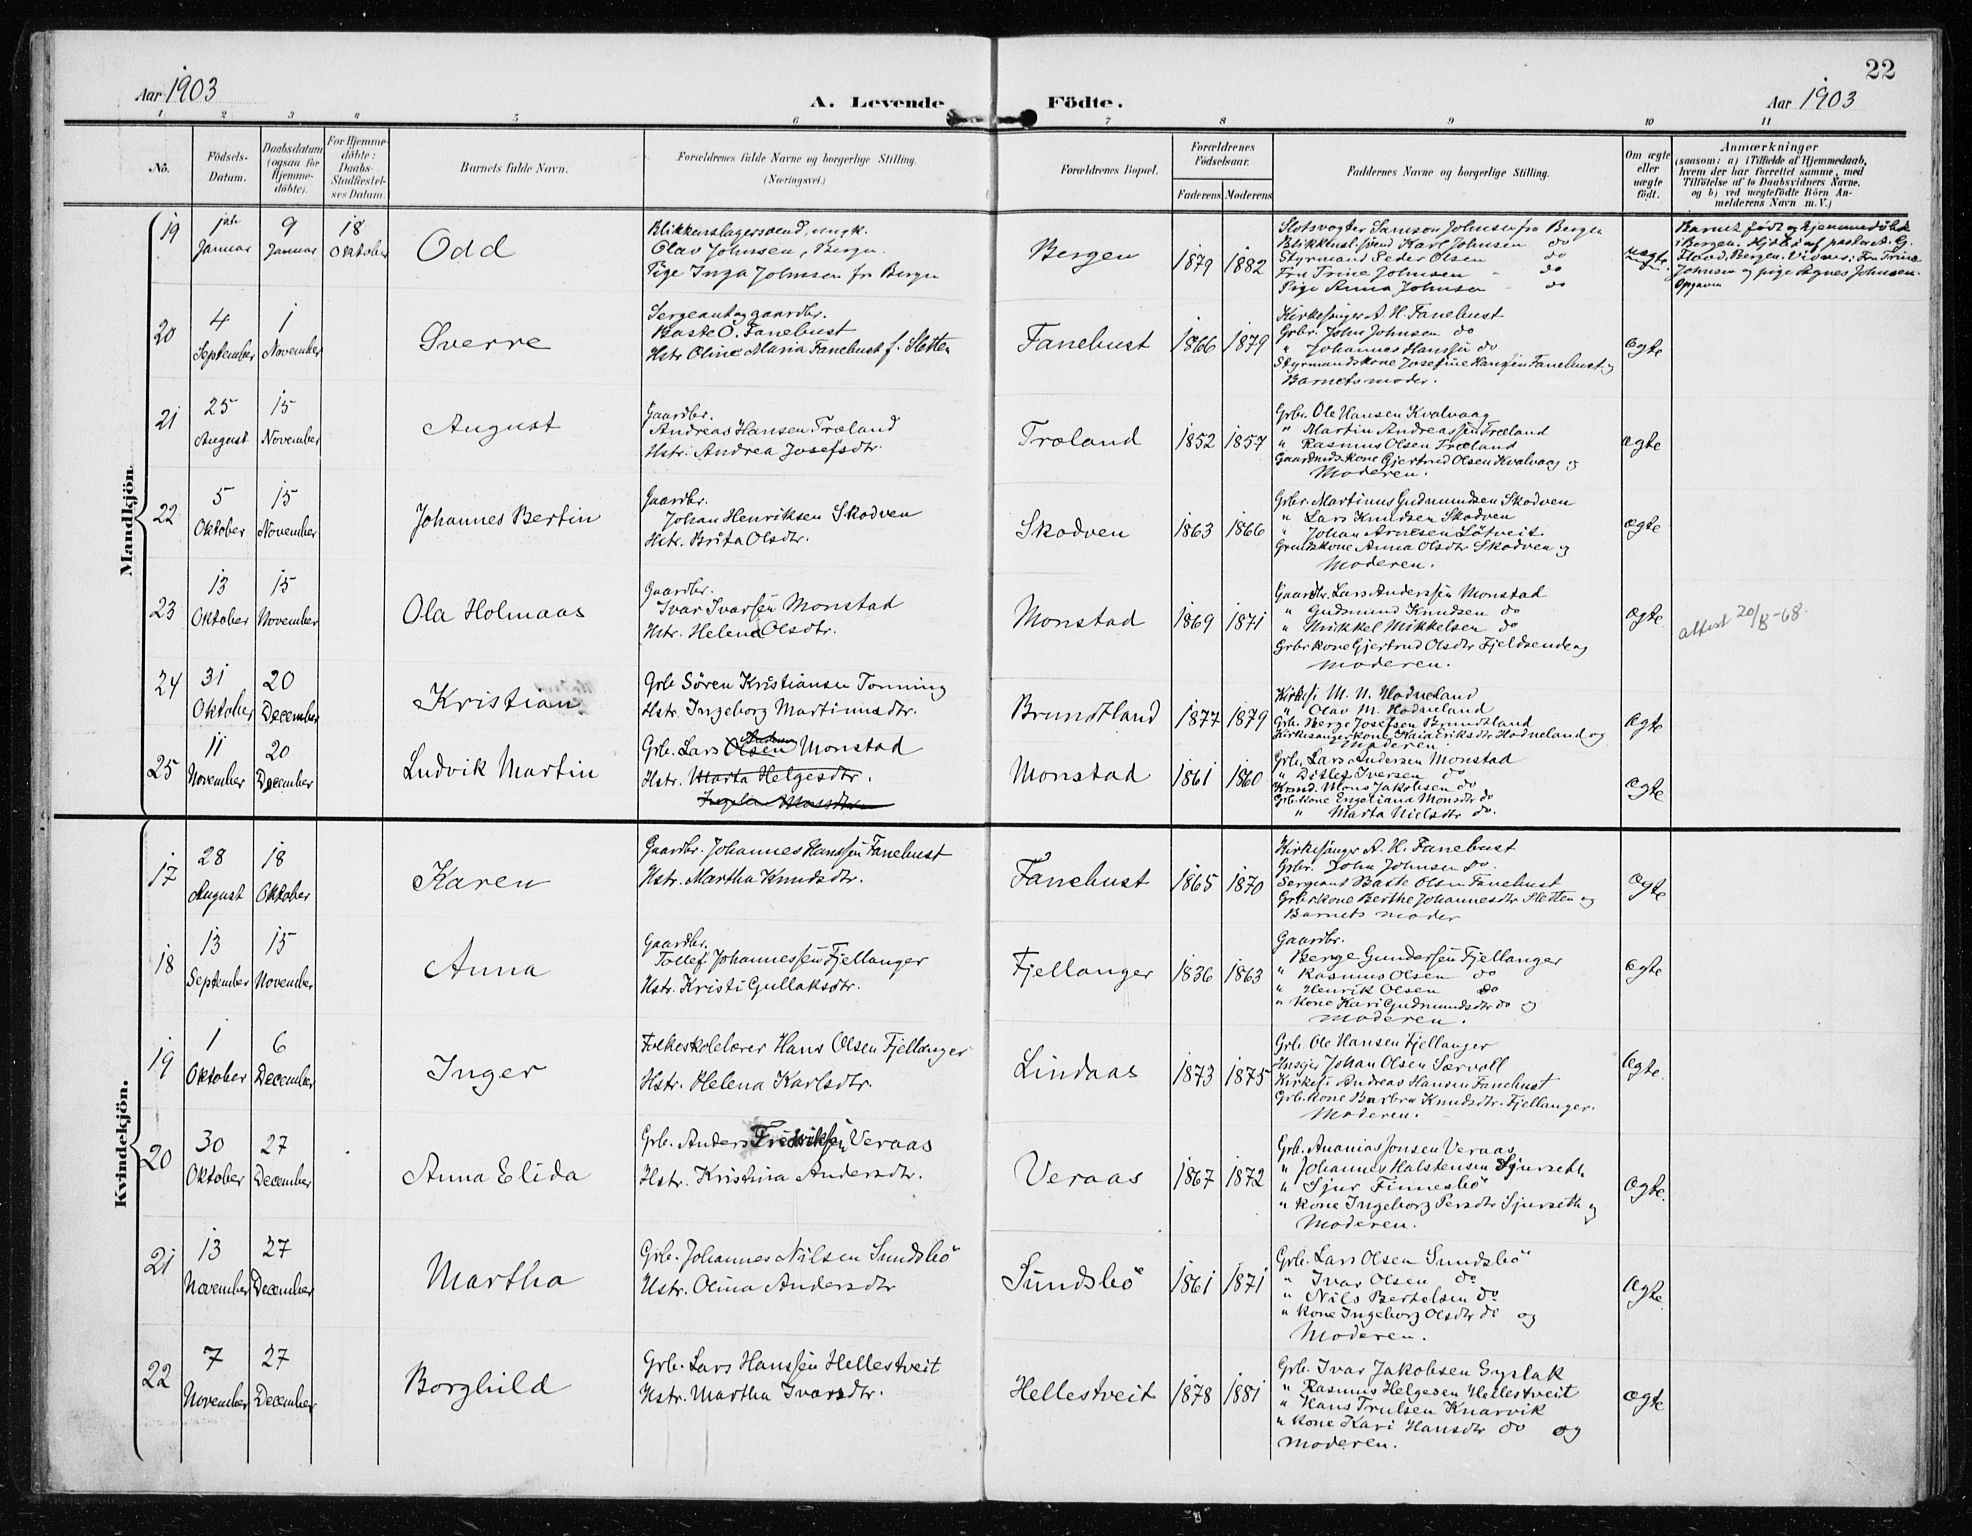 22
Aar 1903
A. Levende
Födte.
Aar 1903
1 2 3 4 5 6 7 8 9 10 11
No.
Födsels-
Datum.
Daabsdatum
(ogsaa for
Hjemme-
döbte).
For Hjemme-
döbte:
Daabs-
Stadfæstel-
ses Datum.
Barnets fulde Navn.
Forældrenes fulde Navne og borgerlige Stilling.
(Næringsvei.)
Forældrenes Bopæl.
Forældrenes
Födselsaar.
Faderens Moderens
Faddernes Navne og borgerlige Stilling.
Om ægte
eller
uægte
födt.
Anmærkninger
(saasom: a) i Tilfælde af Hjemmedaab,
hvem der har forrettet samme, med
Tilföielse af to Daabsvidners Navne,
og b) ved uægtefödte Börn An-
melderens Navn m. V.)
Mandkjön.
19
Januar
9
Januar
18
Oktober
Odd
Blikkenslagersvend, ungk.
Olav Johnsen, Bergen.
Pige Inga Johnsen fr Bergen
Bergen
1879 1882
Slotsvogter Samson Johnsen fra Bergen
Karl Johnsen do
Styrmand Peder Olsen do
Fru Trine Johnsen - do
Pige Anna Johnsen - do
uægte
Barnet født og hjemmedöbt
i Bergen.
Bergen. Vidner: Fru Trine
Johnsen og pige Agnes Johnsen.
20
4
September
1
November
Sverre
Sergeant og gaardbr.
Baste O. Fanebust
Hstr Oline Maria Fanebust f. Sletten
Fanebust
1866 1879
Kirkesanger A. H. Fanebust
Grbr. John Johnsen do
" Johannes Hanssen do
Styrmandskone Josefine Hanssen Fanebust og
Barnets moder.
ægte
21
25
August
15
November
August
Gaardbr.
Andreas Hansen Træland
Hstr. Andrea Josefsdtr.
Træland
1852 1857
Grbr. Ole Hansen Kvalvaag
" Martin Andreassen Træland
" Rasmus Olsen Træland
Gaardmds.kone Gjertrud Olsen Kvalvaag og
Moderen.
ægte
22
5
Oktober
15
November
Johannes Bertin
Gaardbr.
Johan Henriksen Skodven
Hstr. Brita Olsdtr.
Skodven
1863 1866
Grbr. Martinus Gudmundsen Skodven
" Lars Knudsen Skodven
" Johan Arnesen Lötveit
Grmdskone Anna Olsdtr Skodven og
Moderen.
ægte
23
13
Oktober
15
November
Ola Holmaas
Gaardbr.
Ivar Ivarsen Monstad
Hstr. Helena Olsdtr.
Monstad
1869 1871
Gaardbr. Lars Anderssen Monstad
" Gudmund Knudsen do
" Mikkel Mikkelsen do
Grbr kone Gjertrud Olsdtr Fjeldsende og
Moderen.
ægte
attest 20/8-68.
24
31
Oktober
20
December
Kristian
Grb Sören Kristiansen Tonning
Hstr. Ingeborg Martinusdtr.
Brundtland
1877 1879
Kirkesi M. N. Hodneland
" Olav M. Hodneland
Grb. Berge Josefsen Brundtland
Kirkesangerkone Kaia Eriksdtr Hodneland og
Moderen.
ægte
25
11
November
20
December
Ludvik Martin
Grb. Lars Olsen Monstad
Hstr. Marta Helgesdtr.
Monstad
1861 1860
Grb. Lars Andersen Monstad
" Ditlef Iversen do
Mons Jakobsen do
Grb. kone Engeliana Monsdtr do
" Marta Nielsdtr do.
ægte
Kvindekjön.
17
28
August
18
Oktober
Karen
Gaardbr. Johannes Hanssen Fanebust
Hstr. Martha Knudsdtr.
Fanebust
1865 1870
Kirkesanger A. H. Fanebust
Grbr. John Johnsen do.
Sergeant Baste Olsen Fanebust
Grbr.kone Berthe Johannesdtr Sletten og
Barnets moder
ægte
18
13
September
15
November
Anna
Gaardbr.
Tollef Johannessen Fjellanger
Hstr. Kristi Gullaksdtr.
Fjellanger
1836 1863
Gaardbr.
Berge Gundersen Fjellanger
" Rasmus Olsen do
" Henrik Olsen do
" kone Kari Gudmundsdtr do og
Moderen.
ægte
19
1
Oktober
6
December
Inger
Folkeskolelærer Hans Olsen Fjellanger
Hstr. Helena Karlsdtr.
Lindaas
1873 1875
Grb. Ole Hansen Fjellanger
Johan Olsen Særvoll
Kirkesi Andreas Hansen Fanebust
Grb.kone Barbra Knudsdtr. Fjellanger.
Moderen.
ægte.
20
30
Oktober
27
December
Anna Elida
Grb. Anders Fredriksen Veraas
Hstr. Kristina Andersdtr.
Veraas
1867 1872
Grb. Ananias Jonsen Veraas
" Johannes Halstensen Sjurseth
" Sjur Finnesbö
" kone Ingeborg Persdtr Sjurseth og
Moderen.
ægte.
21
13
November
27
December
Martha
Grb. Johannes Nilsen Sundsbö
Hstr. Olina Andersdtr
Sundsbö
1861 1871
Grb. Lars Olsen Sundsbö
" Ivar Olsen do
" Nils Bertelsen do
" kone Ingeborg Olsdtr do og
Moderen.
ægte.
22
7
November
27
December
Borghild
Grb. Lars Hanssen Hellestveit
Hstr. Martha Ivarsdtr.
Hellestveit
1878 1881
Grb. Ivar Jakobsen Syslak
" Rasmus Helgesen Hellestveit
" Hans Trulsen Knarvik
" kone Kari Hansdtr do og
Moderen.
ægte